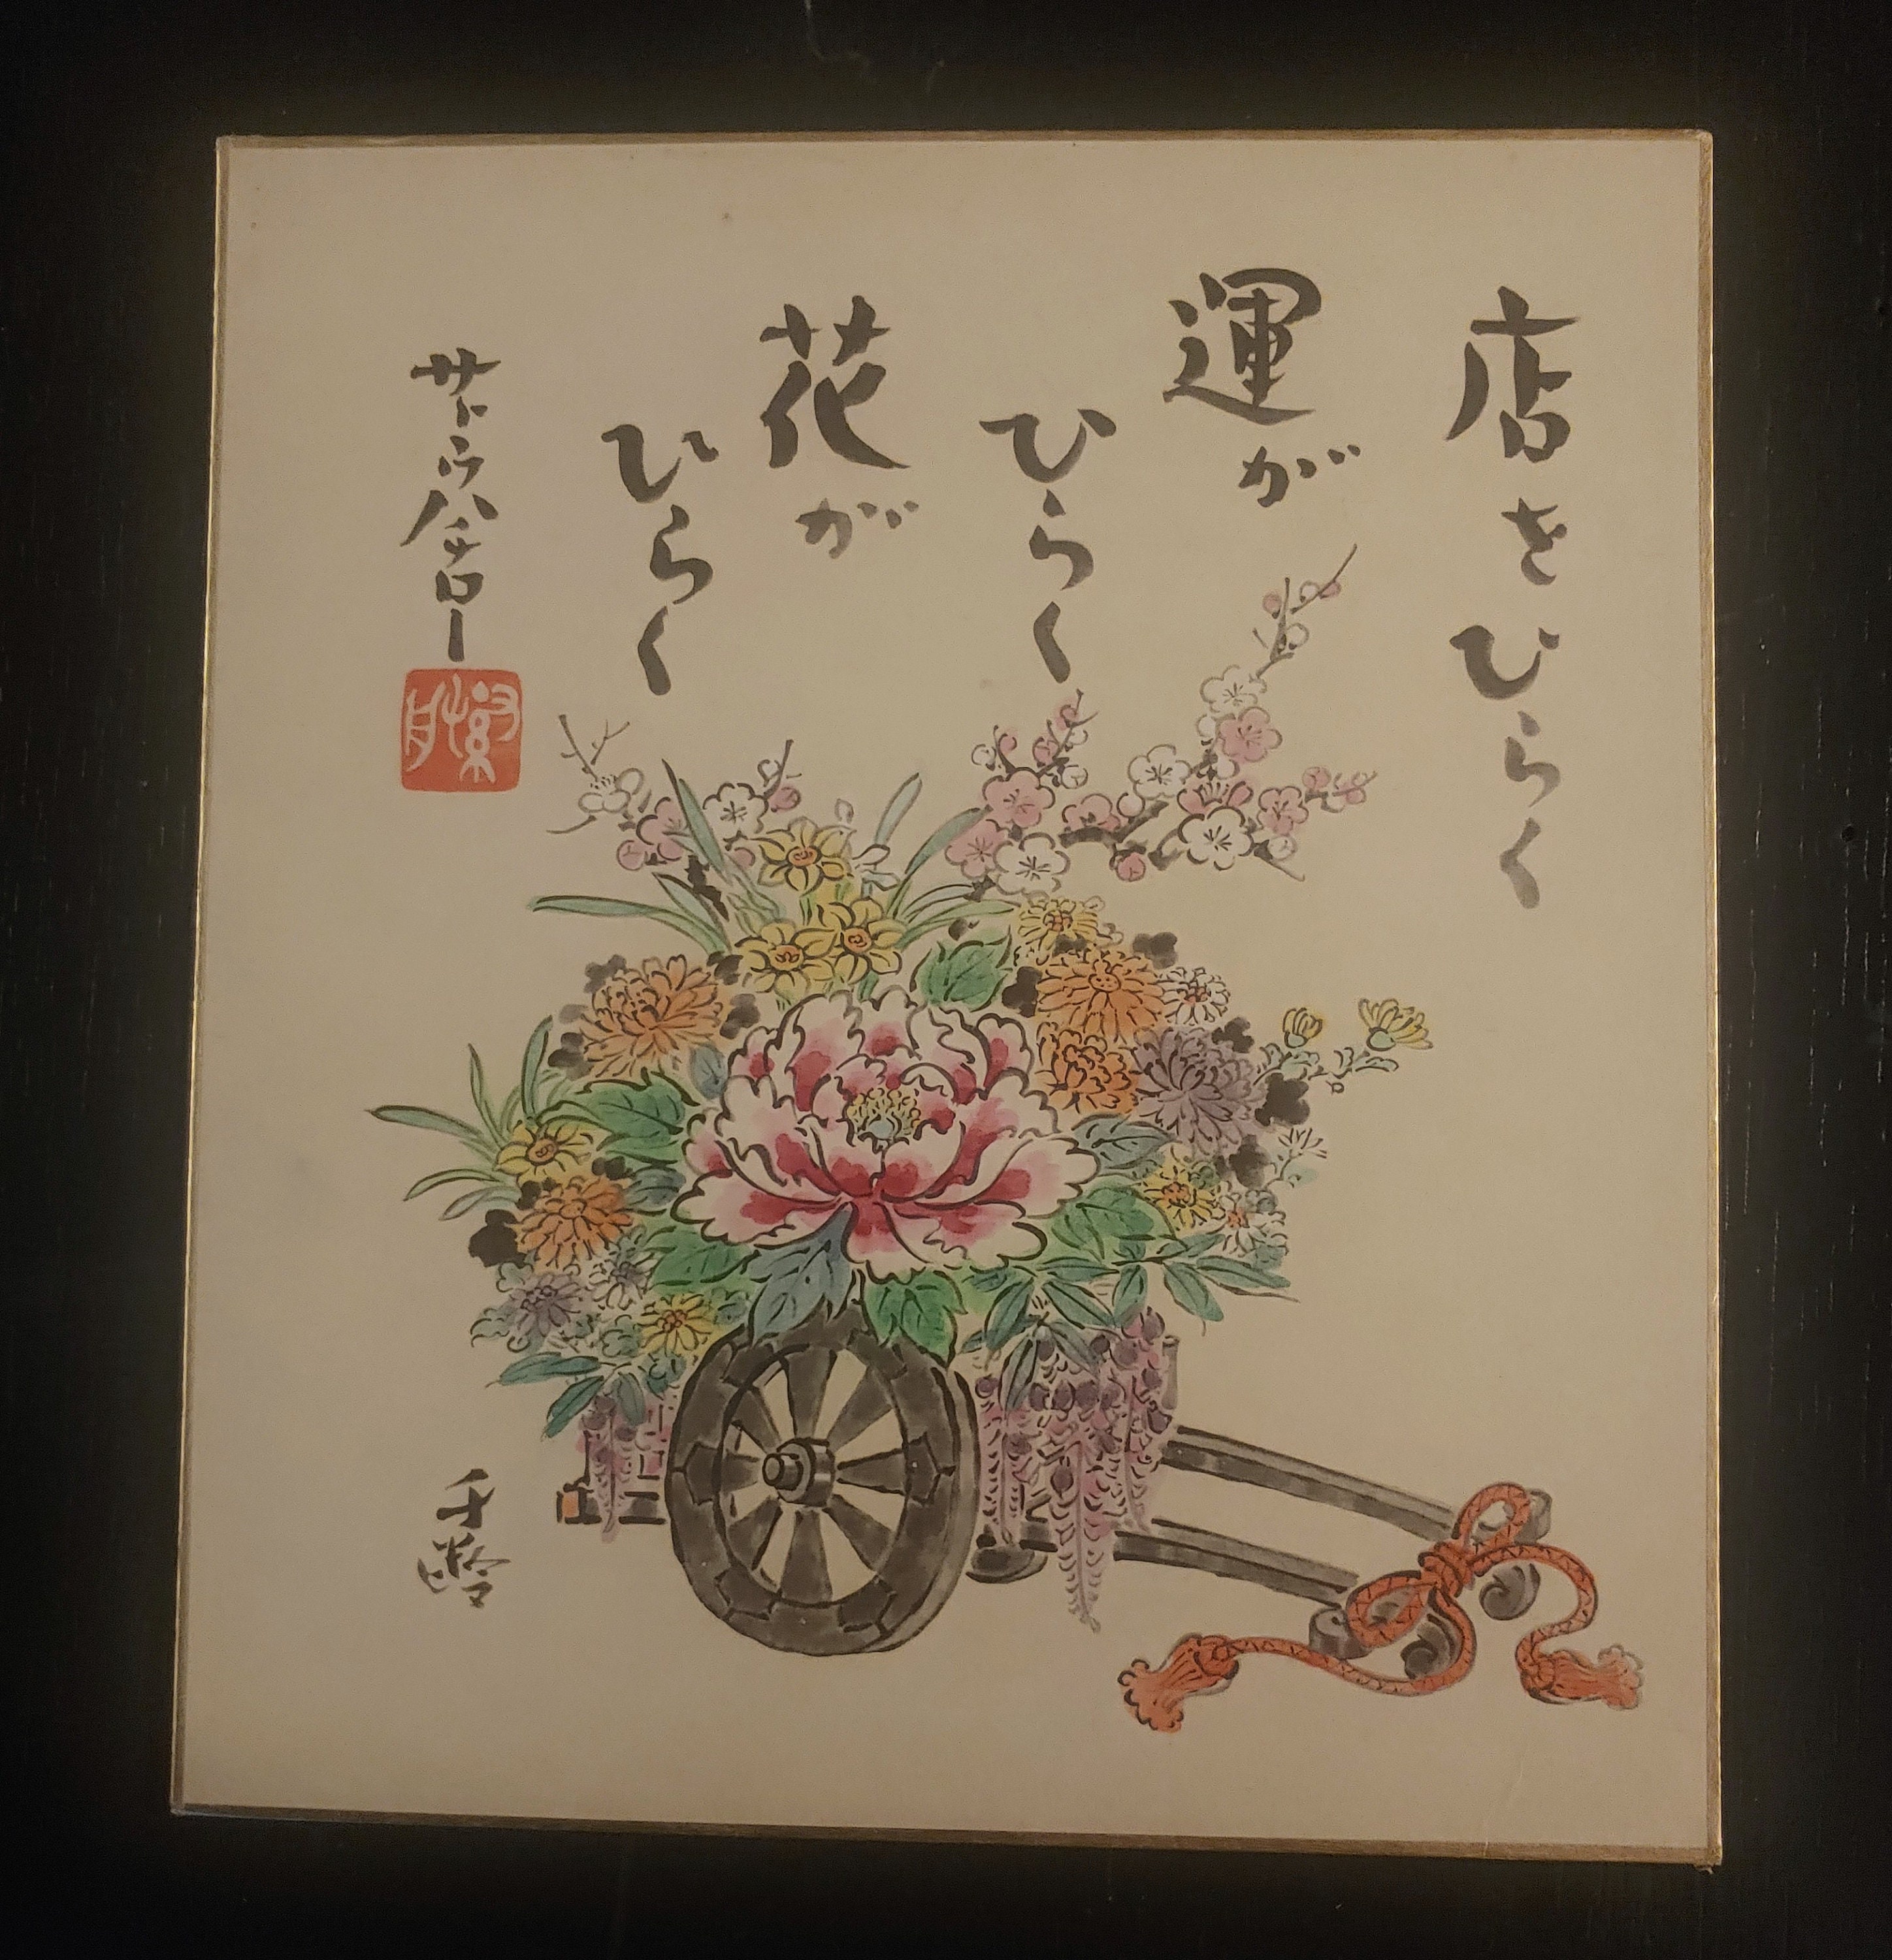 店をひらく
運が
ひらく
花が
ひらく
サトウハチロー
千齢